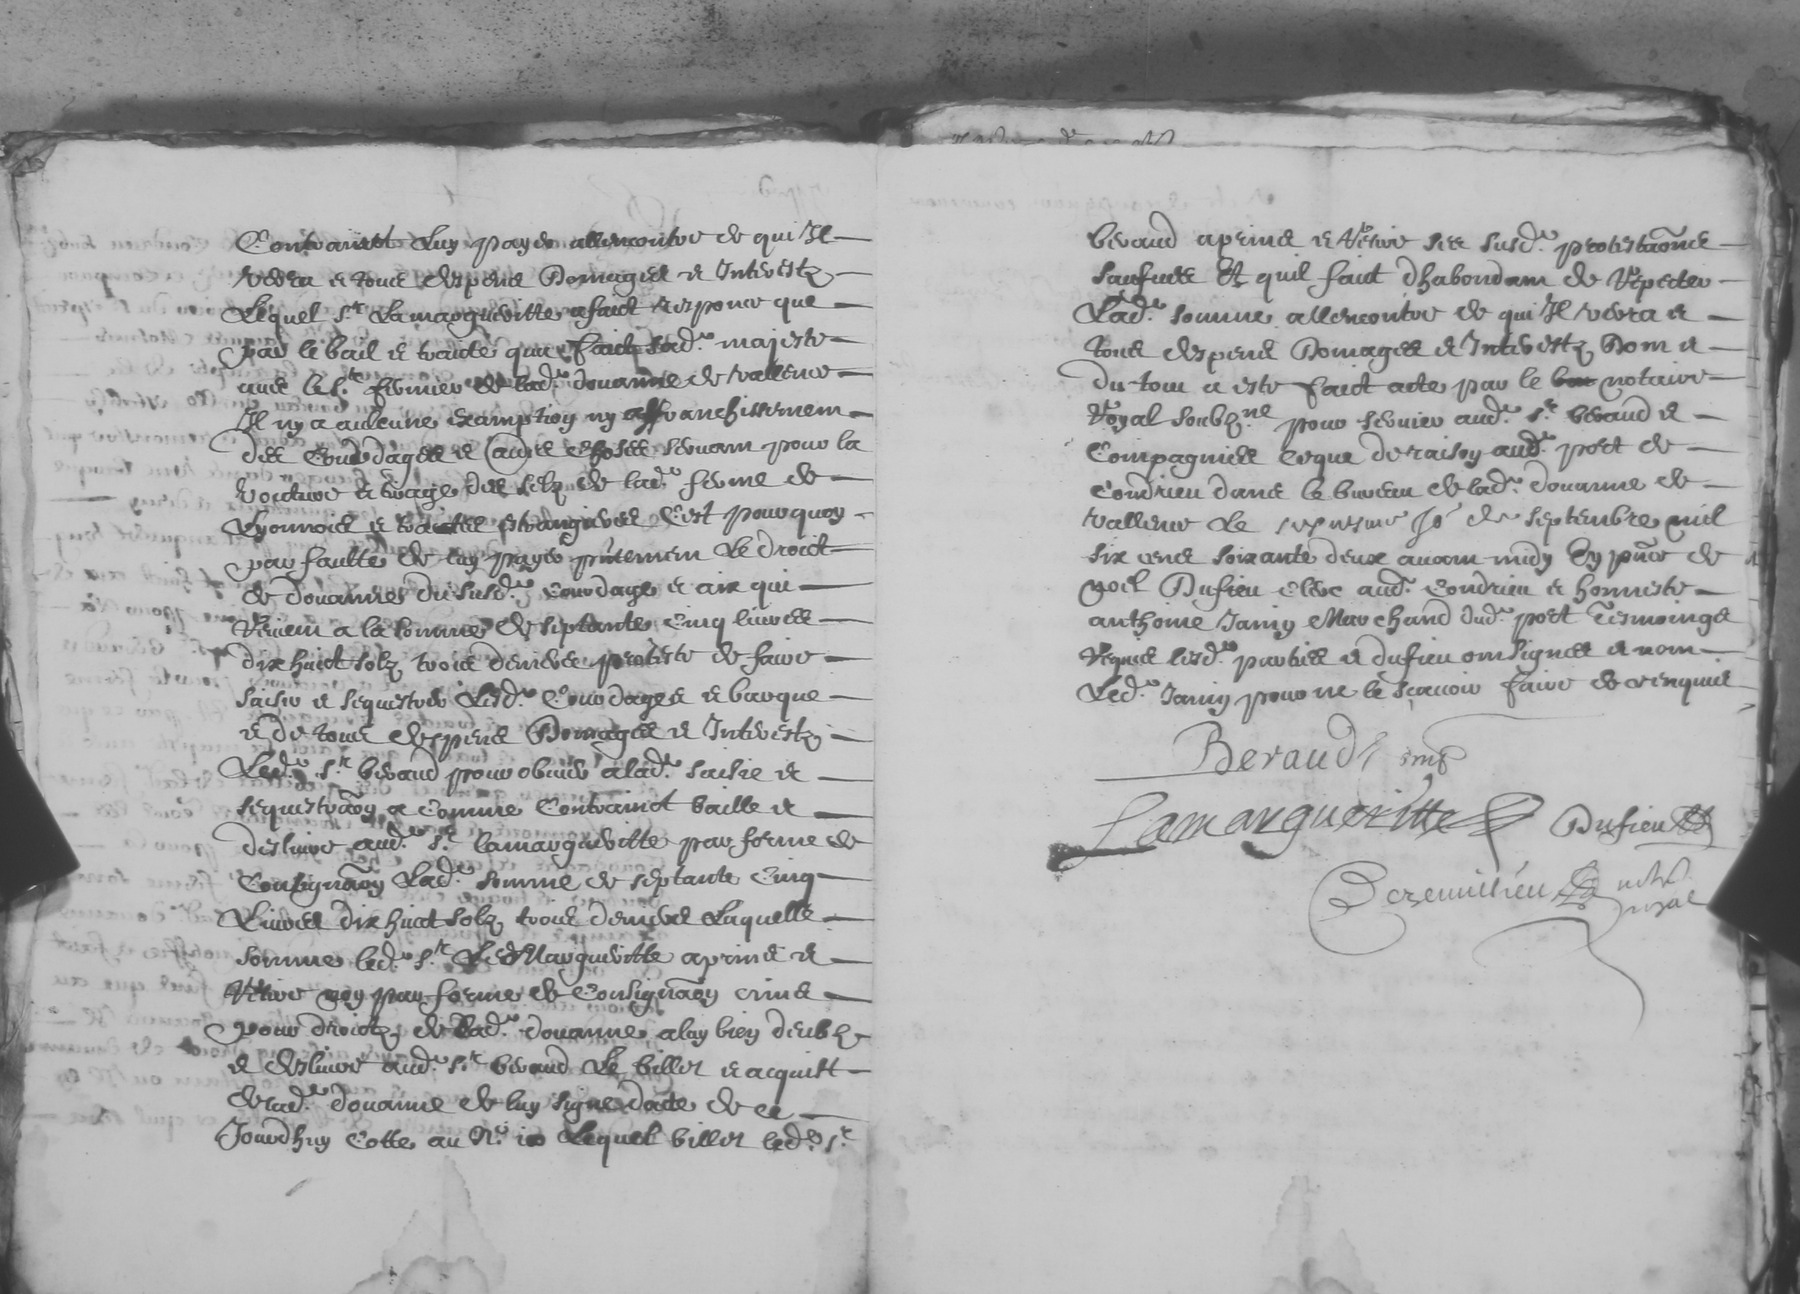 Contrainct Luy payer allencontre de qui Il
verra et tous despens Domages et Interestz
Lequel sr Lamargueritte a faict responce que
par le bail et traicté qua faict sad. majesté
avec le sr fermier de lad. douanne de vallence
Il ny a aulcune exemption ny affranchissemen
des Courdages et autres choses servant pour la
voicture et tirage des selz de lad. ferme de
Lyonnois et traictes estrangieres C'est pourquoy
par faulte de luy payer prntement Le droict
de douanne du susd. Courdage et aix qui
Revient a la somme de septante Cinq livres
dix huict solz trois deniers proteste de faire
saisir et sequestrer Lesd. Courdages et barque
et de tous despens Domages et Interestz
Led. sr beraud pour obvier a lad. saisie et
sequestraon a Comme Contrainct baille et
deslivre aud. sr lamargueritte par forme de
Consignaon Lad. somme de septante Cinq
Livres dix huict solz trois deniers Laquelle
somme led. sr Margueritte a prins et
Retire non par forme de Consignaon ains
pour droictz de lad. douanne a luy bien deubz
et deslivre aud. sr beraud Le billet et acquitt
de lad. douanne de luy signe date de ce
Jourdhuy Cotte au N.º 10 Lequel billet led. sr
beraud a prins et Retire sur susd. protestaons
saufves Et quil faict dhabondam de Repeter
Lad. somme allencontre de qui Il verra et
tous despens Domages et Interestz Dom et
du tout a esté faict acte par le notaire
Royal soubz.né pour servir aud. sr beraud et
Compagnies Ce que de raison aud. port de
Condrieu dans le bureau de lad. douanne de
vallence Le Jo.r de septembre mil
six cens soixante deux avant midy En pnce de
noel Dufieu clerc aud. Condrieu et honneste
anthoine Janin Marchand dud. port Tesmoings
Requis lesd. parties et dufieu ont signes et non
Led. Janin pour ne le scavoir faire de ce enquis
Beraud
Lamargueritte Dufieu
royal